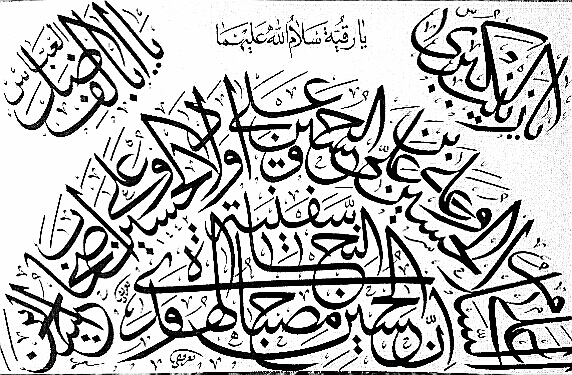 يا رقية سلام الله عليهما
يا زينب الكبرى
يا أبا الفضل العباس
السلام على الحسين وعلى علي بن الحسين وعلى أولاد الحسين وعلى أصحاب الحسين
إن الحسين مصباح الهدى وسفينة النجاة